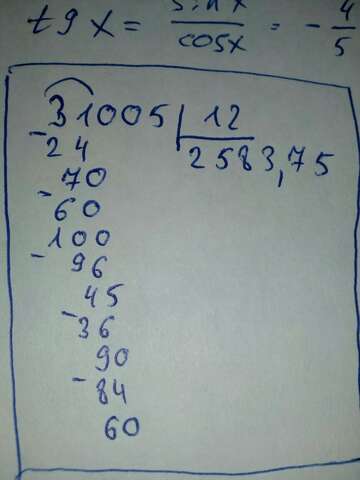 tg x = sin x / cosx = - 4/5
31005 | 12
- 24 2583,75
70
- 60
100
- 96
45
- 36
90
- 84
60